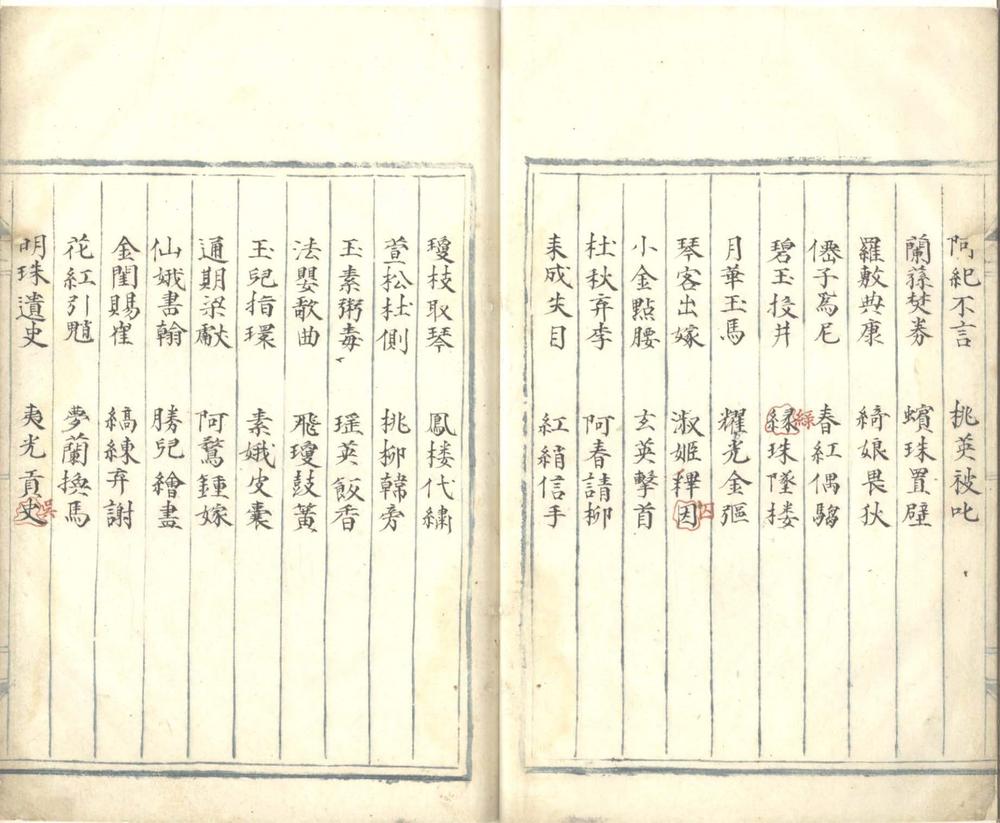 阿紀不言 挑英被叱
蘭蓀焚券 蠙珠置壁
羅敷典康 綺娘畏狄
僊子為尼 春紅偶騶
碧玉投井 縁珠墜楼
綠
月華玉馬 耀光金彄
琴客出嫁 淑姬釋因
囚
小金點腰 玄英擊首
杜秋弃李 阿春請柳
耒成失目 紅綃信手
瓊枝取琴 鳳楼代繡
萱松杜側 挑柳韓旁
玉素粥毒 瑶英飯香
法嬰歌曲 飛瓊鼓簧
玉兒指環 素娥皮囊
通期梁獻 阿鶩鍾嫁
仙娥書翰 勝兒繪畫
金閨賜崔 縞練弃謝
花紅引魁 夢蘭換馬
明珠遺史 夷光貢史
吳